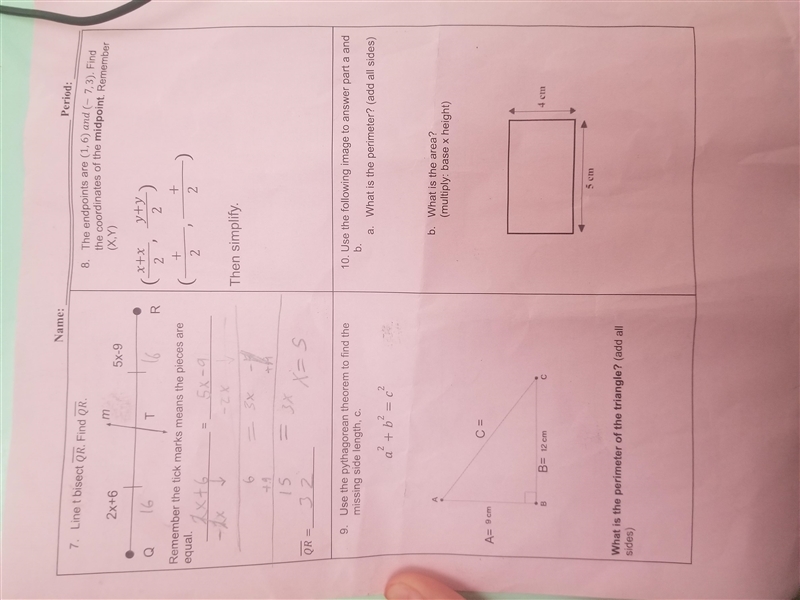 Name:
Period:
7. Line t bisect QR. Find QR.
2x+6
m
5x-9
Q
16
T
16
R
Remember the tick marks means the pieces are
equal. 2x+6 = 5x-9
-2x ↓ -2x ↓
6 = 3x -9
+9 +9
15 = 3x
x = 5
QR = 32
8. The endpoints are (1, 6) and (− 7, 3). Find
the coordinates of the midpoint. Remember
(X,Y)
(x+x/2, y+y/2)
(+/2, +/2)
Then simplify.
9. Use the pythagorean theorem to find the
missing side length, c.
a² + b² = c²
A
C =
A= 9 cm
B
B= 12 cm
C
What is the perimeter of the triangle? (add all
sides)
10. Use the following image to answer part a and
b.
a. What is the perimeter? (add all sides)
b. What is the area?
(multiply: base x height)
4 cm
5 cm